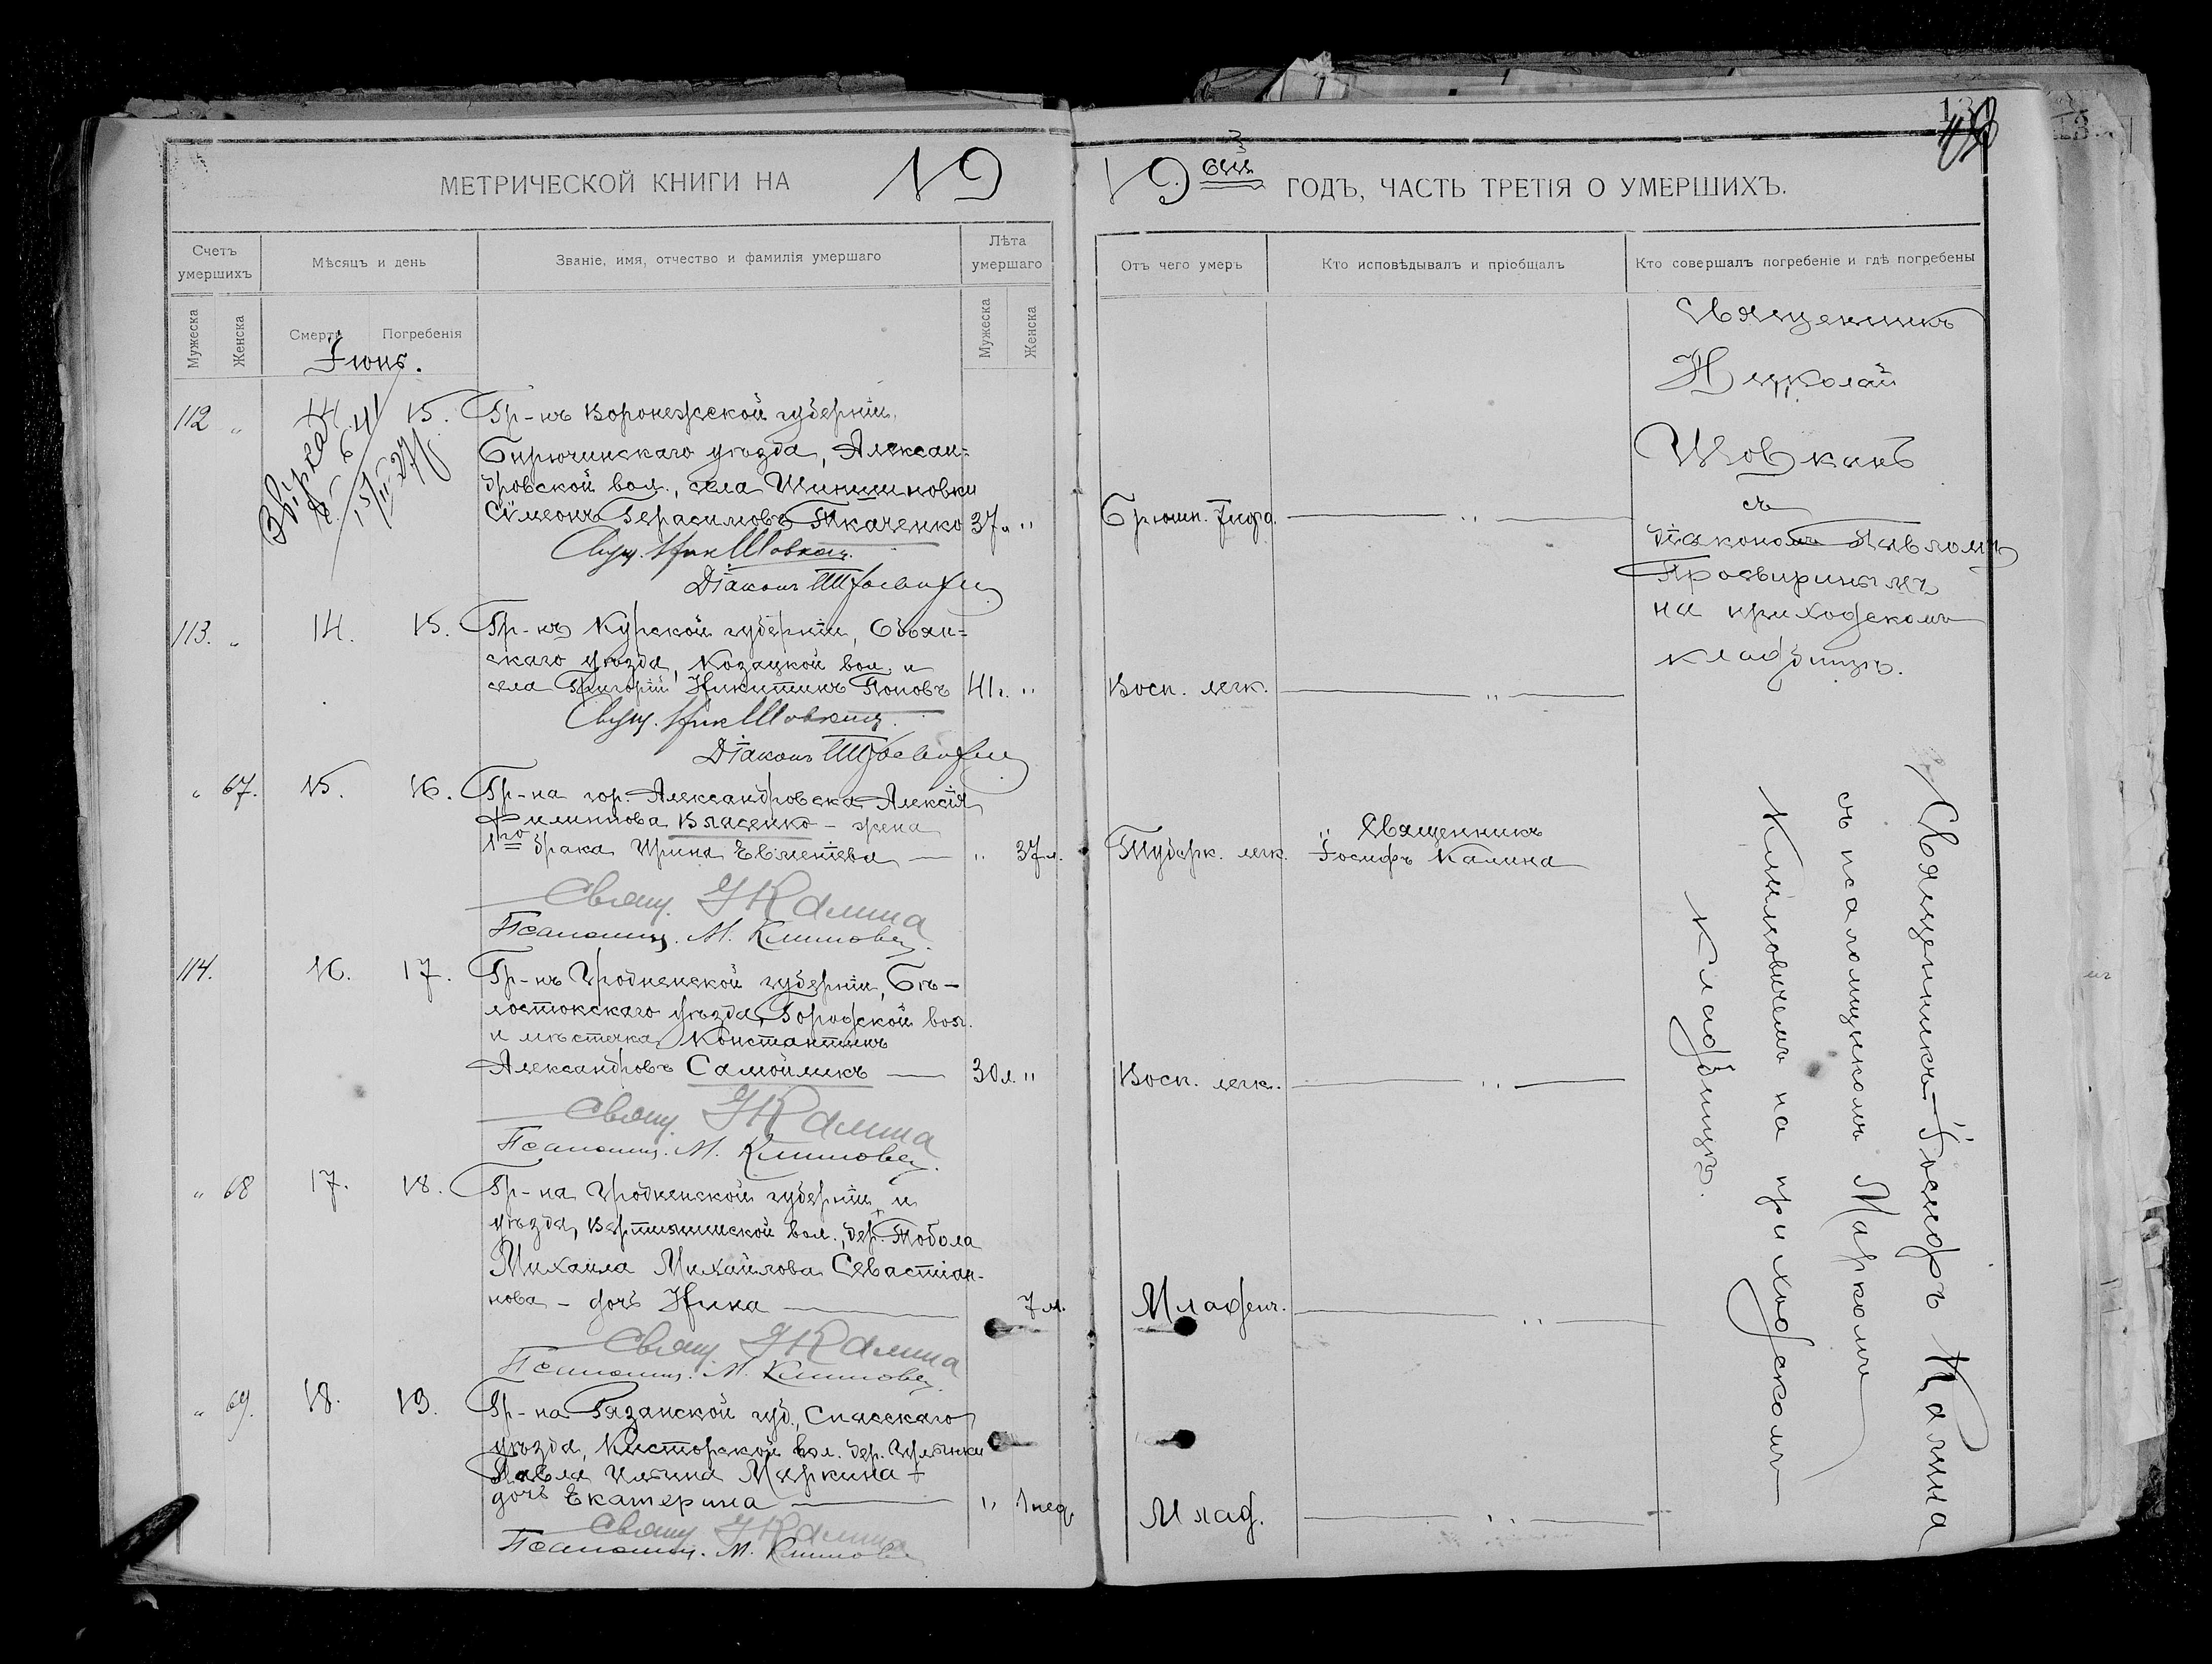 МЕТРИЧЕСКОЙ КНИГИ НА 19
Счетъ умершихъ
Мѣсяцъ и день
Званіе, имя, отчество и фамилія умершаго
Лѣта умершаго
Мужеска
Женска
Смерти
Погребенія
Мужеска
Женска
Іюнь.
112 " 14 15. Гр-нъ Воронежской губерніи,
Бирюченскаго уѣзда, Алексан=
дровской вол., села
Сімеонъ Герасимовъ Ткаченко 37л "
Свящ. Ник Шовкань
Діаконъ
113. " 14. 15. Гр-нъ Курской губерніи, Обоян=
скаго уѣзда, Козацкой вол. и
села Григорій Никитинъ Поповъ 41г. "
Свящ. Ник Шовкань
Діаконъ
" 67. 15. 16. Гр-на гор. Александровска Алексія
Филиппова Власенко – жена
1го брака Ирина Евменіева " 37л.
Свящ. І Калина
Псаломщ. М. Климович.
114. 16. 17. Гр-нъ Гродненской губерніи, Бѣ-
лостокскаго уѣзда, Городской вол.
и мѣстечка Константинъ
Александровъ Самойликъ 30л. "
Свящ. І Калина
Псаломщ. М. Климович.
" 68 17. 18. Гр-на Гродненской губерніи и
уѣзда, Вертилишской вол., дер. Тобола
Михаила Михайлова Севастіан-
нова – дочь Нина 7 м.
Свящ І Калина
Псаломщ. М. Климович.
" 69. 18. 19. Гр-на Рязанской губ., Спасскаго
уѣзда, Кисторской вол. дер.
Павла Ильина Маркина –
дочь Екатерина " 1 нед.
Свящ І Калина
Псаломщ. М. Климович
19 ГОДЪ, ЧАСТЬ ТРЕТІЯ О УМЕРШИХЪ.
Отъ чего умеръ
Кто исповѣдывалъ и пріобщалъ
Кто совершалъ погребеніе и гдѣ погребены
Священникъ
Николай
Шовкань
съ
діакономъ Павломъ
Просвиринымъ
на приходскомъ
кладбищѣ.
Брюшн. тифа. "
Восп. легк. "
Туберк. легк. " Священникъ
Іосифъ Калина
Восп. легк. "
Младенч. "
Млад. "
Священникъ Іосифъ Калина
съ псаломщикомъ Маркомъ
Климовичемъ на приходскомъ
кладбищѣ.